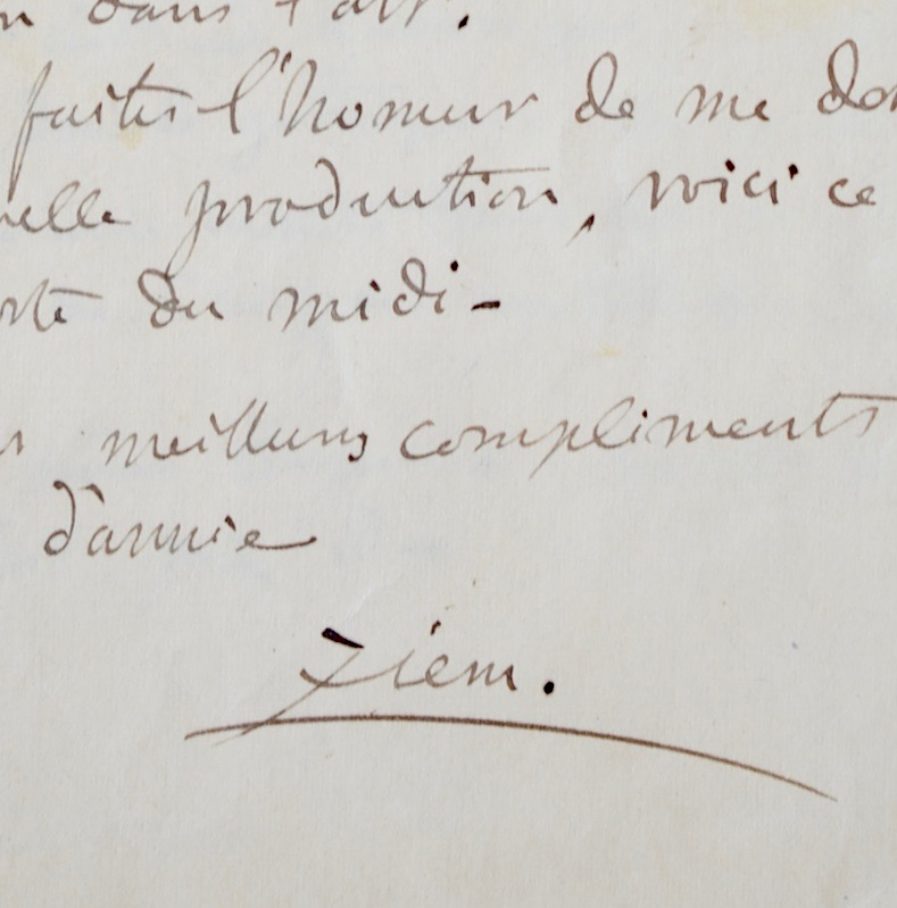 dans l'art.
faites l'honneur de me don
velle production, voici ce
orte du midi -
meilleurs compliments
d'année
Ziem.